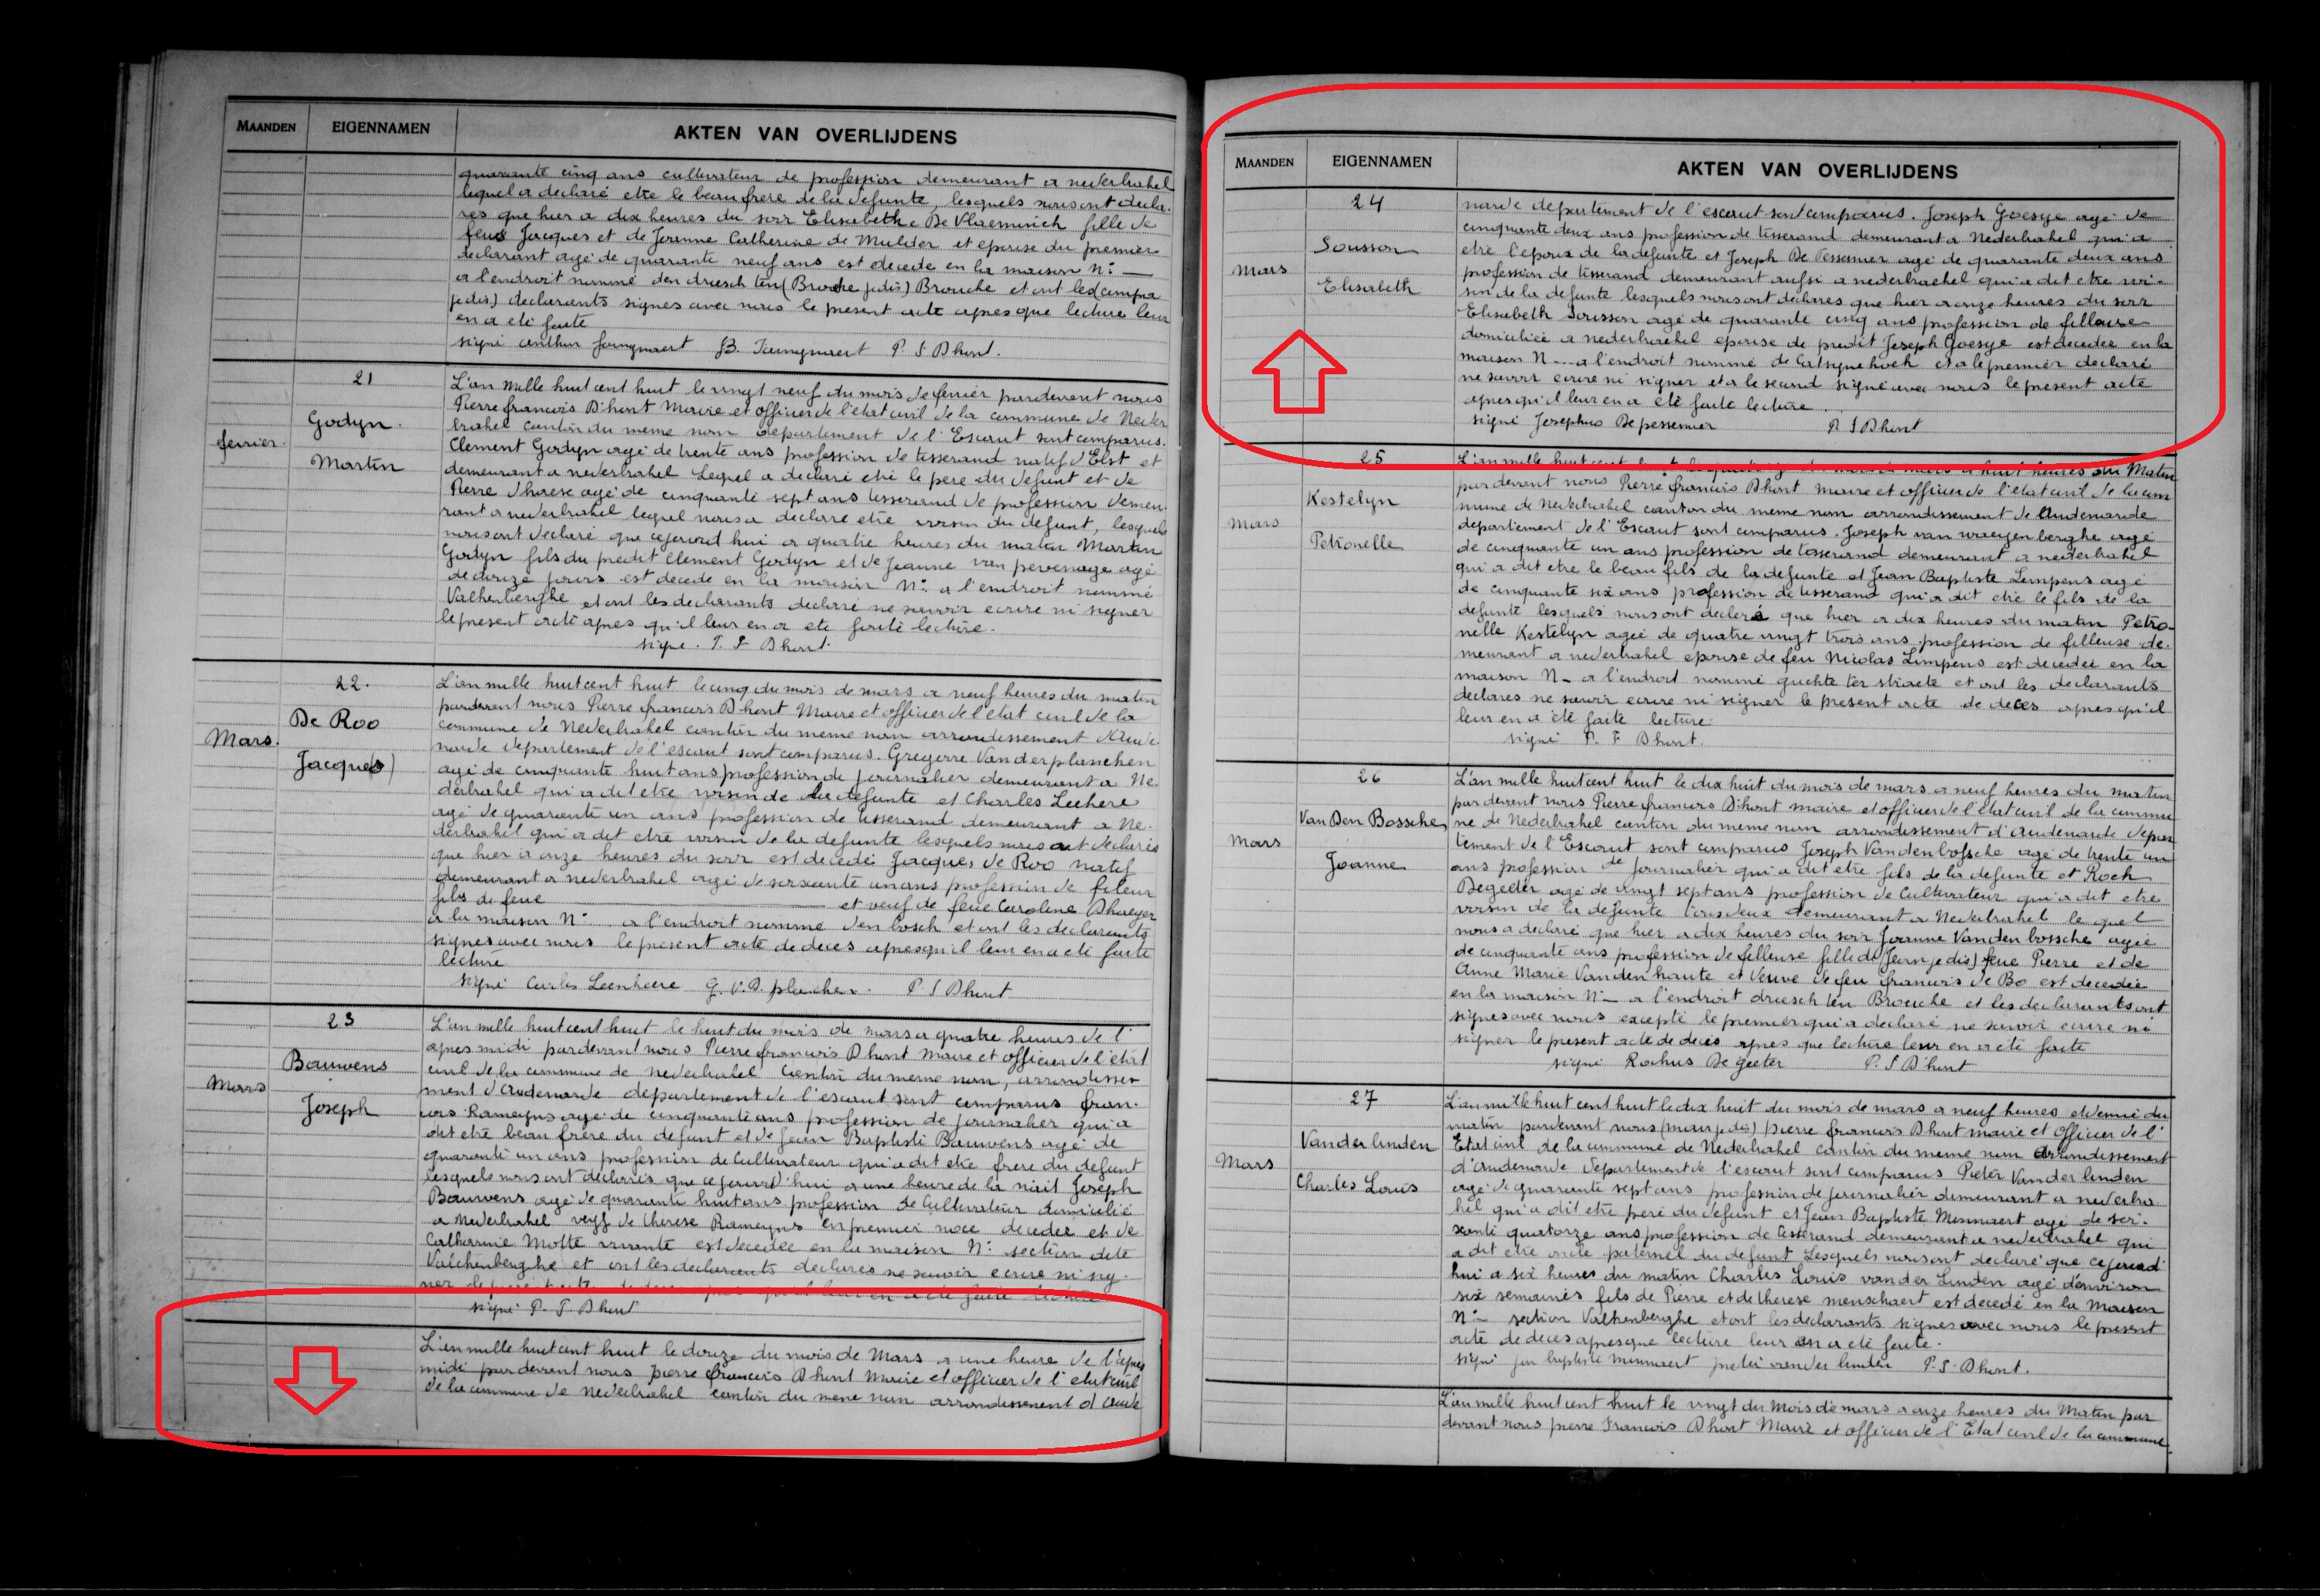 MAANDEN EIGENNAMEN AKTEN VAN OVERLIJDENS
quarante cinq ans cultivateur de profession demeurant a nederbrakel
lequel a declaré etre le beau frere de la defunte, lesquels nous ont decla-
rés que hier a dix heures du soir Elisabeth De Vlaeminck fille de
feus Jacques et de Joanne Catherine de Mulder et epouse du premier
declarant agé de quarante neuf ans est decede en la maison N: —
a l'endroit nommé den driesch ten (Broeke jedis) Brouche et ont les (compa
jedis) declarants signés avec nous le present acte apres que lecture leur
en a eté faite
signé P. S Dhont.
21
Godyn.
fevrier.
Martin
L'an mille huit cent huit le vingt neuf du mois de fevrier pardevant nous
Pierre francois D'hont Maire et officier de l'etat civil de la commune de Neder
brakel canton du meme nom departement de l'Escaut sont comparus.
Clement Godyn agé de trente ans profession de tisserand natif d'Elst et
demeurant a nederbrakel Lequel a declaré etre le pere du defunt et de
Pierre D'haese agé de cinquante sept ans tisserand de profession demeu-
rant a nederbrakel lequel nous a declaré etre voisin du defunt, lesquels
nous ont declaré que cejourd hui a quatre heures du matin Martin
Godyn fils du predit Clement Godyn et de Jeanne van pevenage agé
de douze jours est decede en la maison N: a l'endroit nommé
Valkenberghe et ont les declarants declaré ne savoir ecrire ni signer
le present acte apres qu'il leur en a eté faite lecture.
signé. P. F Dhont.
22.
De Roo
Mars.
Jacques)
L'an mille huit cent huit le cinq du mois de mars a neuf heures du matin
pardevant nous Pierre francois Dhont Maire et officier de l'etat civil de la
commune de Nederbrakel canton du meme nom arrondissement d'Aude-
narde departement de l'escaut sont comparus. Gregoire Vanderplanchen
agé de cinquante huit ans profession de journalier demeurant a Ne-
derbrakel qui a dit etre voisin de la defunte et Charles Leehere
agé de quarante un ans profession de tisserand demeurant a Ne-
derbrakel qui a dit etre voisin de la defunte lesquels nous ont declarés
que hier a onze heures du soir est decedé Jacques de Roo natif
demeurant a nederbrakel agé de soixante un ans profession de fileur
fils de feue — et veuf de feue Caroline Dhaeyer
a la maison N: a l'endroit nommé den bosch et ont les declarants
signés avec nous le present acte de deces apres qu'il leur en a eté faite
lecture
signé Carles Leenheere G. V. D. plancken. P. S Dhont
23
Bauwens
Mars
Joseph
L'an mille huit cent huit le huit du mois de mars a quatre heures de l'
apres midi pardevant nous Pierre francois Dhont Maire et officier de l'etat
civil de la commune de nederbrakel canton du meme nom, arrondisse-
ment d'Audenarde departement de l'escaut sont comparus fran-
cois Rameyns agé de cinquante ans profession de journalier qui a
dit etre beau frere du defunt et de Jean Baptiste Bauwens agé de
quarante un ans profession de Cultivateur qui a dit etre frere du defunt
lesquels nous ont declarés que cejourd'hui a une heure de la nuit Joseph
Bauwens agé de quarante huit ans profession de Cultivateur domicilié
a Nederbrakel veuf de therese Rameyns en premier noce decedee et de
Catherine Motte vivante est decedée en la maison N: section dite
Valckenberghe et ont les declarants declarés ne savoir ecrire ni sig-
ner le present acte
signé P. F Dhont
L'an mille huit cent huit le douze du mois de Mars a une heure de l'apres
midi pardevant nous pierre francois Dhont Maire et officier de l'etat civil
de la commune de Nederbrakel canton du meme nom arrondissement d'Aude
MAANDEN EIGENNAMEN AKTEN VAN OVERLIJDENS
24
Sousson
Mars
Elisabeth
narde departement de l'escaut sont comparus. Joseph Goesye agé de
cinquante deux ans profession de tisserand demeurant a Nederbrakel qui a
etre l'epoux de la defunte et Joseph De Pessemier agé de quarante deux ans
profession de tisserand demeurant aussi a nederbrakel qui a dit etre voi-
sin de la defunte lesquels nous ont declarés que hier a onze heures du soir
Elisabeth Sousson agé de quarante cinq ans profession de filleuse
domiciliée a nederbrakel epouse de predit Joseph Goesye est decedee en la
maison N — a l'endroit nommé de Catsynehoek et a le premier declaré
ne savoir ecrire ni signer et a le second signé avec nous le present acte
apres qu'il leur en a eté faite lecture.
signé Josephus De pessemier P. S Dhont
25
Kestelyn
Mars
Petronelle
L'an mille huit cent mars a huit heures du Matin
par devant nous Pierre francois Dhont Maire et officier de l'etat civil de la com
mune de Nederbrakel canton du meme nom arrondissement de Audenarde
departement de l'Escaut sont comparus. Joseph van waeyenberghe agé
de cinquante un ans profession de tisserand demeurant a nederbrakel
qui a dit etre le beau fils de la defunte et Jean Baptiste Limpens agé
de cinquante six ans profession de tisserand qui a dit etre le fils de la
defunte lesquels nous ont declaré que hier a dix heures du matin Petro-
nelle Kestelyn agée de quatre vingt trois ans profession de filleuse de-
meurant a nederbrakel epouse de feu Nicolas Limpens est decedée en la
maison N — a l'endroit nommé guchte ter straete et ont les declarants
declarés ne savoir ecrire ni signer le present acte de deces apres qu'il
leur en a eté faite lecture.
signé P. F Dhont.
26
Van Den Bossche
Mars
Joanne
L'an mille huit cent huit le dix huit du mois de mars a neuf heures du matin
par devant nous Pierre francois D'hont maire et officier de l'etat civil de la commu
ne de Nederbrakel canton du meme nom arrondissement d'Audenarde depar
tement de l'Escaut sont comparus Joseph Vandenbossche agé de trente un
ans profession de journalier qui a dit etre fils de la defunte et Roch
Degeder agé de vingt sept ans profession de Cultivateur qui a dit etre
voisin de la defunte tous deux demeurant a Nederbrakel le quel
nous a declaré que hier a dix heures du soir Joanne Vandenbossche agée
de cinquante ans profession de filleuse fille de (Jean je dis) feue Pierre et de
Anne Marie Vandenhaute et Veuve de feu francois de Bo est decedée
en la maison N: — a l'endroit driesch ten Brouche et les declarants ont
signés avec nous excepté le premier qui a declaré ne savoir ecrire ni
signer le present acte de deces apres que lecture leur en a eté faite
signé Rochus De geeter P. S D'hont
27
Vanderlinden
Mars
Charles Louis
L'an mille huit cent huit le dix huit du mois de mars a neuf heures et demie du
matin pardevant nous (mair je dis) pierre francois Dhont maire et Officier de l'
Etat civil de la commune de Nederbrakel canton du meme nom arrondissement
d'audenarde departement de l'escaut sont comparus Pieter Vanderlinden
agé de quarante sept ans profession de journalier demeurant a nederbra
kel qui a dit etre pere du defunt et Jean Baptiste Mennaert agé de soi-
xante quatorze ans profession de tisserand demeurant a nederbrakel qui
a dit etre oncle paternel du defunt Lesquels nous ont declaré que cejourd
hui a six heures du matin Charles Louis van der Linden agé d'environ
six semaines fils de Pierre et de therese menschaert est decedé en la Maison
N: — section Valkenberghe et ont les declarants signes avec nous le present
acte de deces apres que lecture leur en a eté faite.
signé jan baptiste mennaert pieter vander linden P. S. Dhont.
L'an mille huit cent huit le vingt du Mois de mars a onze heures du Matin par
devant nous pierre Francois Dhont Maire et officier de l'Etat civil de la commune